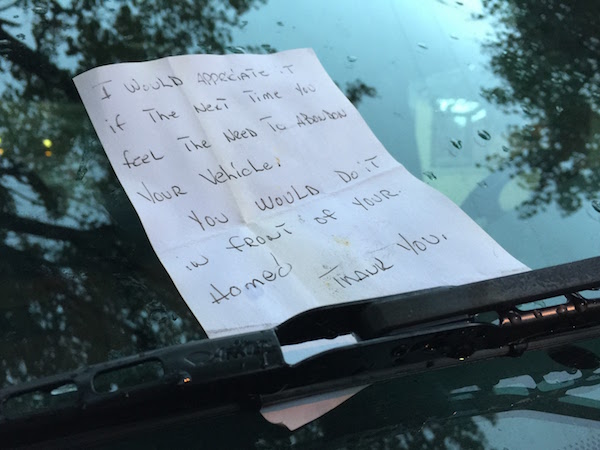 I WOULD APPECIATE IT
if THE NEXT TIME YOU
fEEL THE NEED TO ABONDON
YOUR VEHICLE!
YOU WOULD DO iT
iN fRONT Of YOUR
HOMEO THANK YOU.